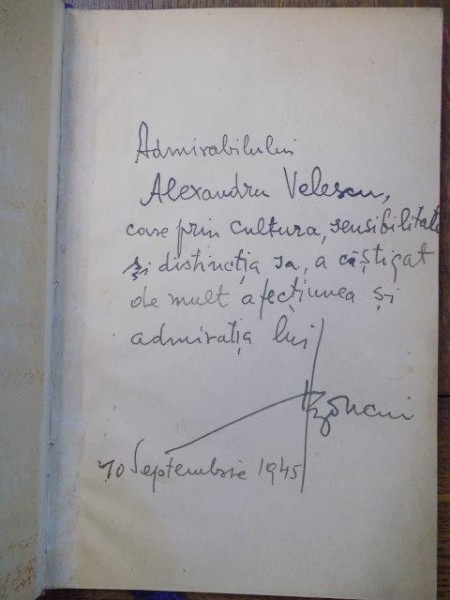 Admirabilului
Alexandru Velescu,
care prin cultura, sensibilitate
și distincția sa, a câștigat
de mult afecțiunea și
admirația lui
10 Septembrie 1945